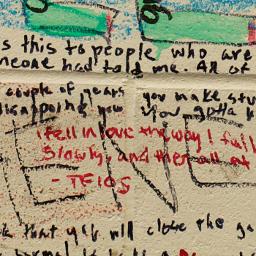 s this to people who are
meone had told me. All of
couple of years
you make stu
disappoints you
You gotta
I fell in love the way I fall
Slowly, and then all at
- TFIOS
k that y'all will close the ga